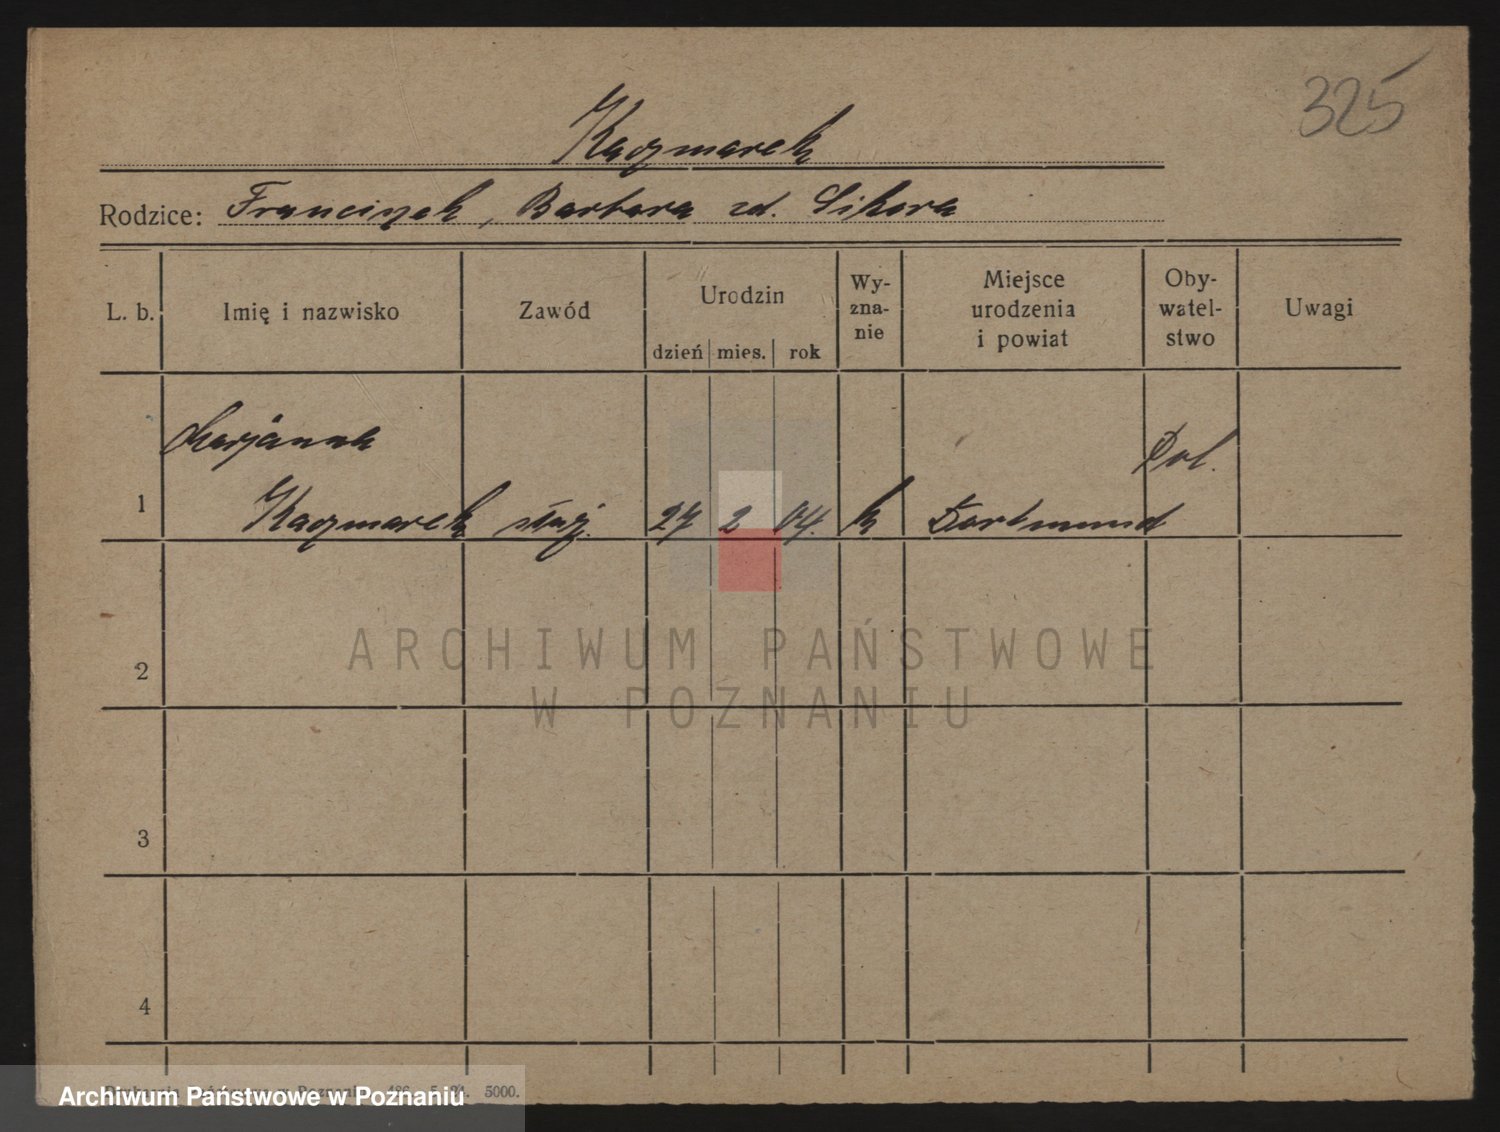 325
Kaczmarek
Rodzice: Franciszek, Barbara zd. Sikora
L. b.
Imię i nazwisko
Zawód
Urodzin
dzień mies. rok
Wy-
zna-
nie
Miejsce
urodzenia
i powiat
Oby-
watel-
stwo
Uwagi
Marjanna
Pol.
1 Kaczmarek służ. 27 2 04. k Dortmund
ARCHIWUM PAŃSTWOWE
W POZNANIU
2
3
4
5000.
Archiwum Państwowe w Poznaniu